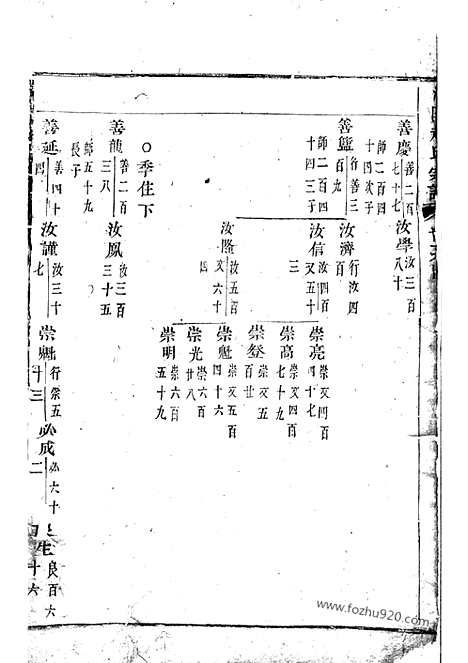 善慶 善二百七十七 師二百四十四次子
汝學 汝三百八十
善籃 行善三百九 師二百四十四三子
汝濟 行汝四百
汝信 汝四百又五十三
崇亮 崇又四百四十七
崇高 崇又四百七十九
崇發 崇又五百廿
汝隆 汝五百又六十四
崇魁 崇又五百四十六
崇光 崇六百廿八
崇明 崇六百五十九
○季住下
善龍 善二百三八 師五十九長子
汝鳳 汝三百三十五
善延 善四十四
汝謹 汝三十七
崇魁 行崇五十三
必成 必六十二
生 良百六十六
www.fozhu920.com